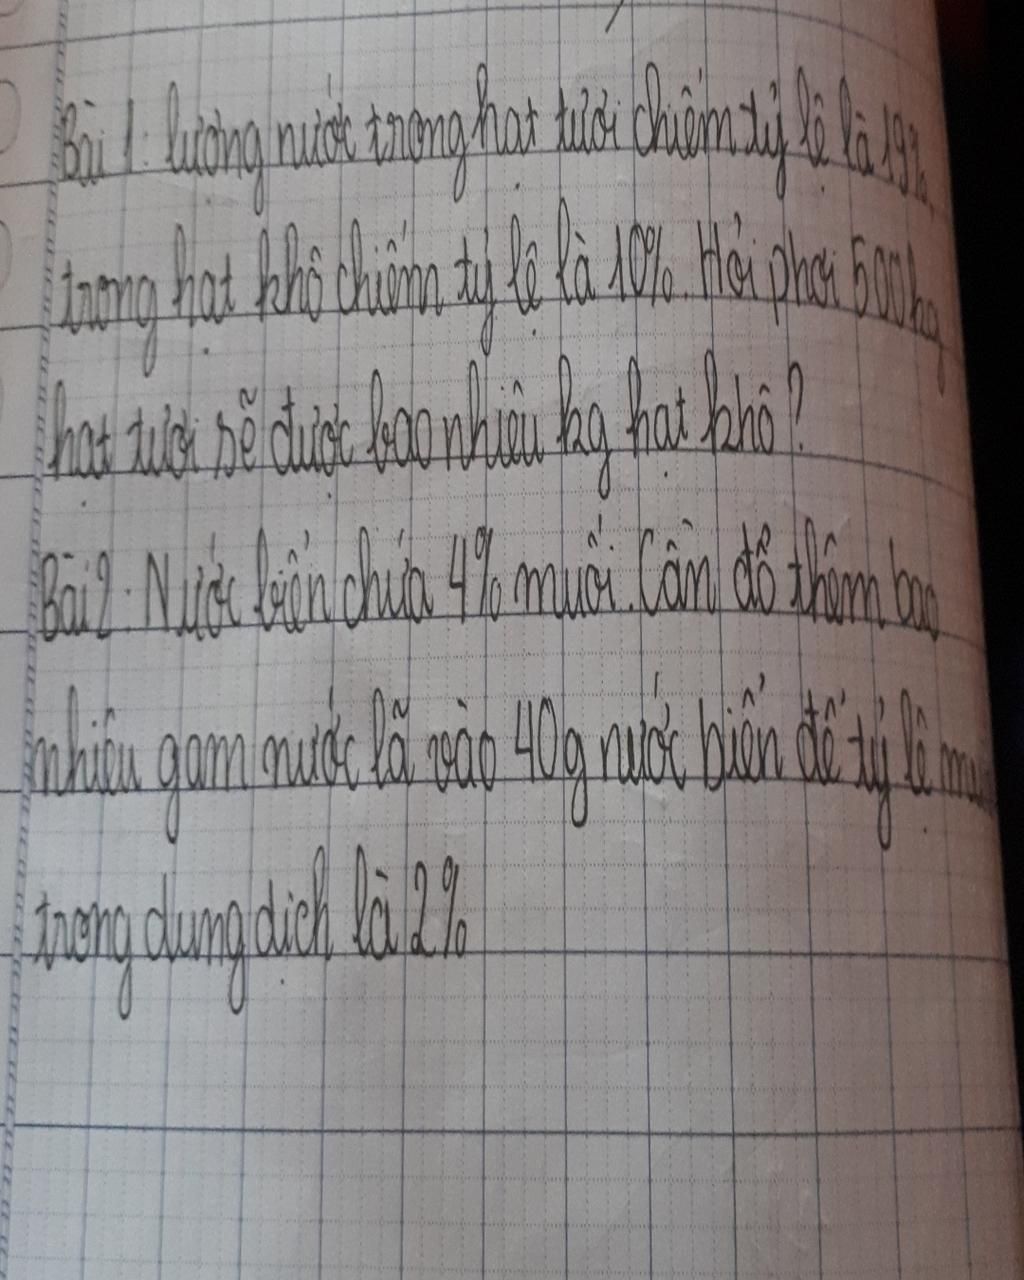 Bài 1: lượng nước trong hạt tươi chiếm tỷ lệ là 19%,
trong hạt khô chiếm tỷ lệ là 10%. Hỏi phơi 500kg
hạt tươi sẽ được bao nhiêu kg hạt khô?
Bài 2: Nước biển chứa 4% muối. Cần đổ thêm bao
nhiêu gam nước lã vào 40g nước biển để tỷ lệ
trong dung dịch là 2%